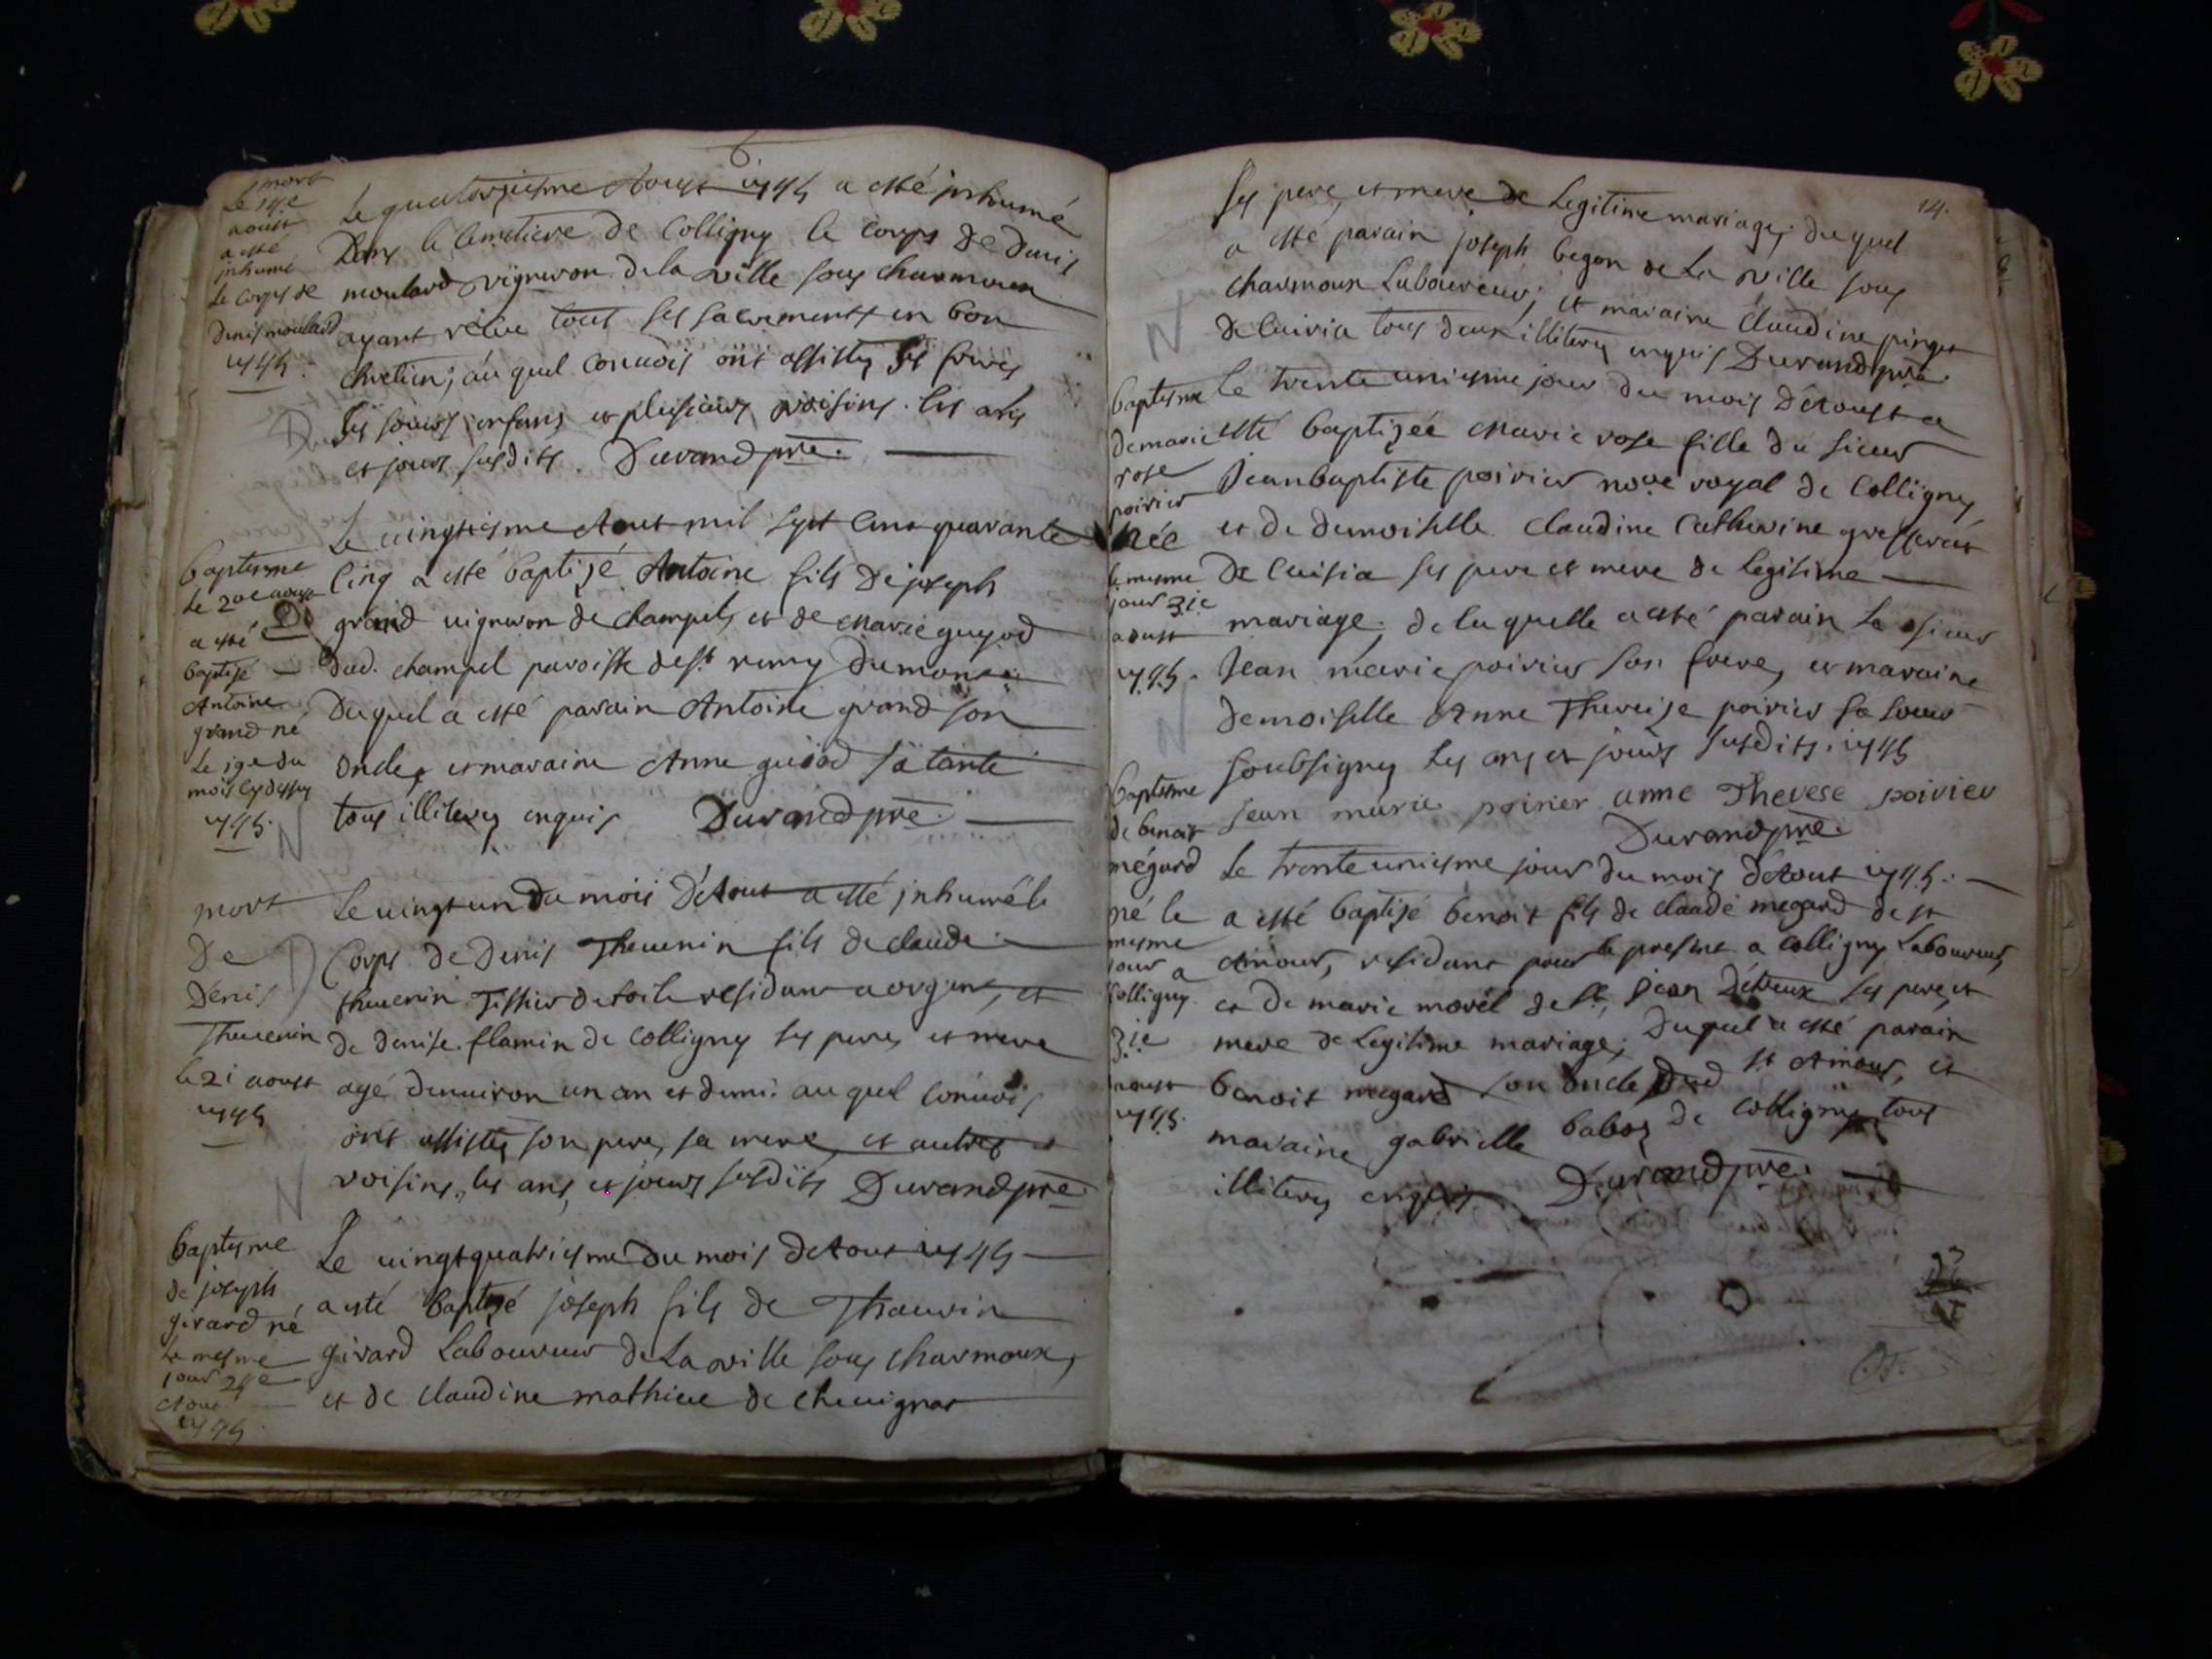 mort
Le 14e
aoust
a esté
jnhumé
Le corps de
denis moulard
1745.
Le quatorziesme Aoust 1745 a esté jnhumé
Dans le Cimetiere de Colligny le corps de Denis
moulard vigneron de la ville sous charmoux
ayant reçue tout ses sacrements en bon
chretien; au quel convois ont assistez ses freres
ses soeurs enfans et plusieurs voisins. les ans
et jours susdits. Durand pre.
baptesme
Le 20e aoust
a esté
baptisé
Antoine
grand né
Le 19e du
mois cy dessus
1745.
Le vingtiesme Aout mil sept Cens quarante
Cinq a esté baptizé Antoine fils de joseph
grand vigneron de champel, et de Marie guyod
dud. champel paroisse de st. remy du mon
Duquel a esté parain Antoine grand son
oncle, et maraine Anne guiod sa tante
tous illiterez enquis Durand pre.
mort
De
Denis
Thevenin
le 21 aoust
1745
Le vingt un du mois D'Aout a esté jnhumé le
Corps de Denis Thevenin fils de claude
thevenin Tissier de toile residant a orgent, et
de denise flamin de Colligny ses pere, et mere
agé denuiron un an et demi. au quel conuois
ont assistez son pere, sa mere, et autres
voisins, les ans, et jours susdits Durand pre.
baptesme
de joseph
girard né
Le mesme
jour 24e
Aout
1745
Le vingt quatriesme Du mois d'Aout 1745
a esté baptizé joseph fils de Thauvin
girard Laboureur de La ville sous charmoux,
et de claudine mathieu de chevignat
14.
ses pere, et mere de Legitime mariage; duquel
a esté parain joseph begon de La ville sous
charmoux Laboureur; et maraine claudine pinget
de Cuivia tous deux illiterez enquis Durand pre.
baptesme
de marie
rose
poirier
née
le mesme
jour 31e
aoust
1745.
Le trente uniesme jour du mois D'Aoust a
esté baptizée Marie rose fille du sieur
Jean baptiste poirier nore royal de Colligny
et de demoiselle Claudine Catherine
de Cuisia ses pere et mere de legitime
mariage; de laquelle a esté parain Le sieur
Jean marie poirier son frere, et maraine
Demoiselle Anne Thereise poirier sa soeur
soubsignez les ans et jours susdits. 1745
jean marie poirier anne Therese poirier
Durand pre.
baptesme
de benoit
mégard
né le
mesme
jour a
Colligny
31e
aoust
1745.
Le trente uniesme jour du mois d'Aout 1745.
a esté baptizé benoit fils de claude megard de st
Amour, residant pour le present a Colligny Laboureur,
et de marie morel de st. Jean D'Etreux ses pere, et
mere de Legitime mariage; Duquel a esté parain
benoit megard son oncle dud st Amour, et
maraine gabrielle baboz de Colligny, tous
illiterez enquis. Durand pre.